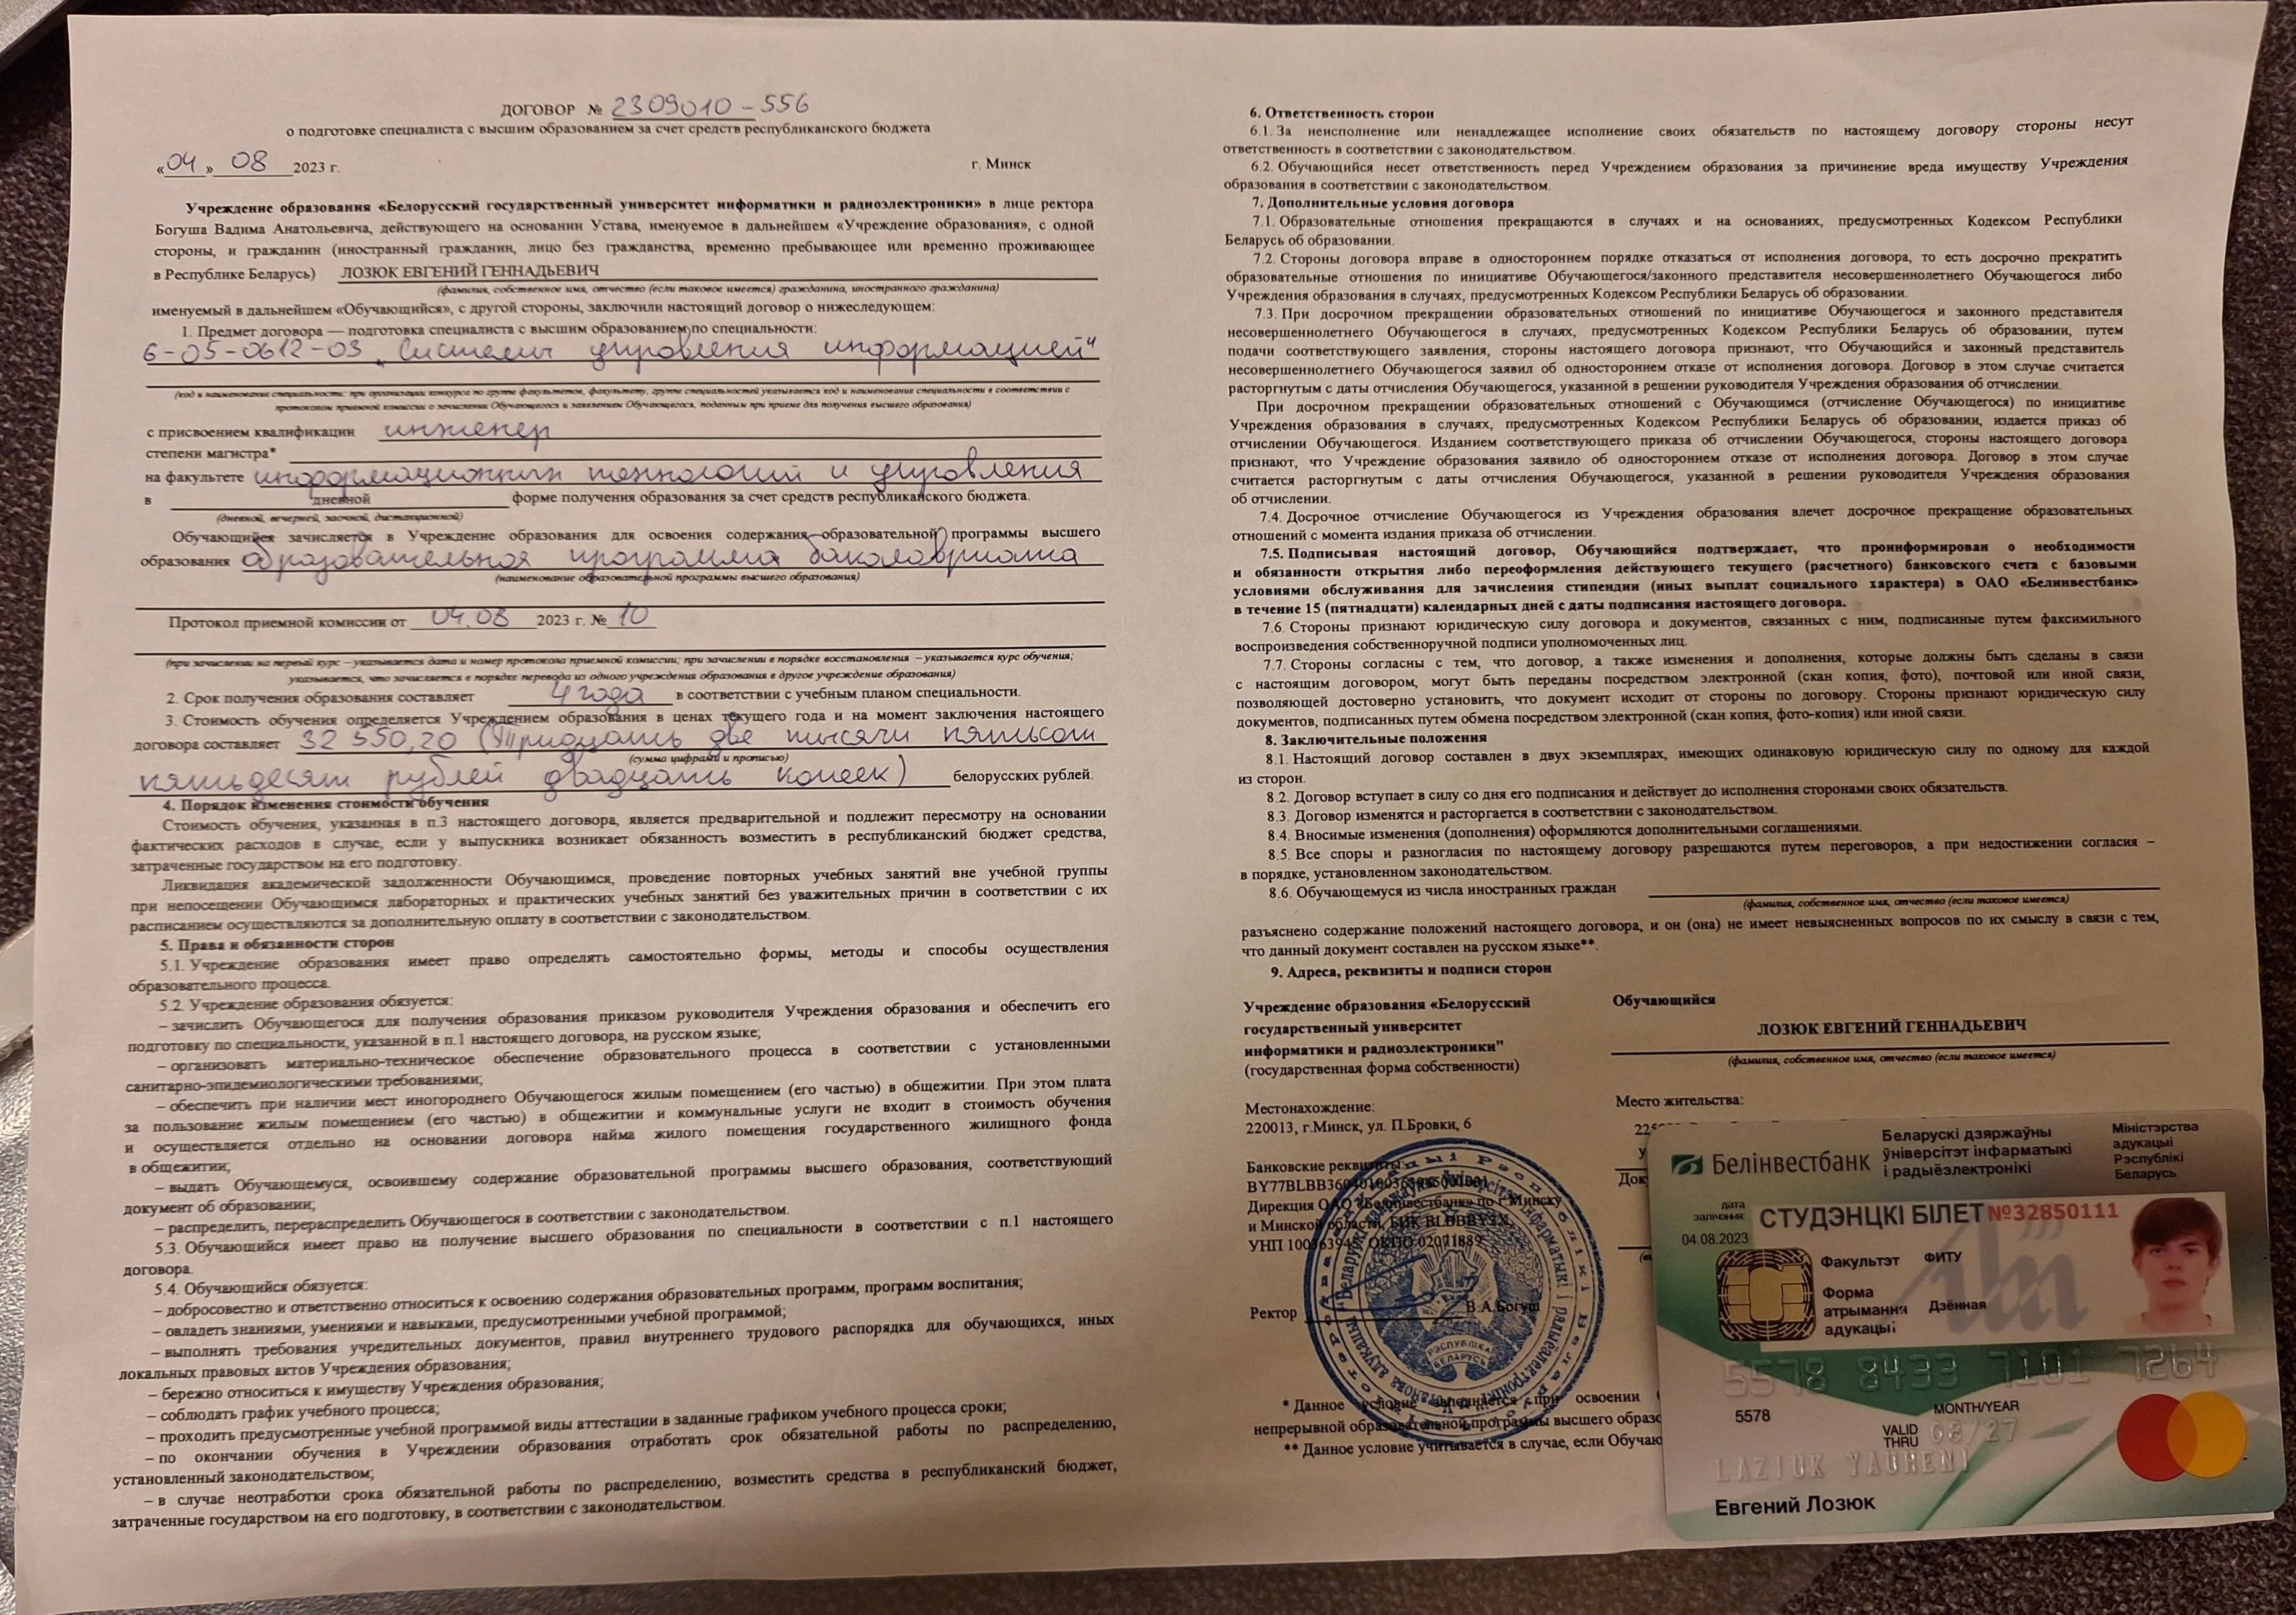 ДОГОВОР № 2309010-556
о подготовке специалиста с высшим образованием за счет средств республиканского бюджета
«04» 08 2023 г. г. Минск
Учреждение образования «Белорусский государственный университет информатики и радиоэлектроники» в лице ректора
Богуша Вадима Анатольевича, действующего на основании Устава, именуемое в дальнейшем «Учреждение образования», с одной
стороны, и гражданин (иностранный гражданин, лицо без гражданства, временно пребывающее или временно проживающее
в Республике Беларусь) ЛОЗЮК ЕВГЕНИЙ ГЕННАДЬЕВИЧ
(фамилия, собственное имя, отчество (если таковое имеется) гражданина, иностранного гражданина)
именуемый в дальнейшем «Обучающийся», с другой стороны, заключили настоящий договор о нижеследующем:
1. Предмет договора — подготовка специалиста с высшим образованием по специальности:
6-05-0612-03 „Системы управления информацией"
(код и наименование специальности; при организации конкурса по группе факультетов, факультету, группе специальностей указывается код и наименование специальности в соответствии с
протоколом приемной комиссии о зачислении Обучающегося и заявлением Обучающегося, поданным при приеме для получения высшего образования)
с присвоением квалификации инженер
степени магистра*
на факультете информационных технологий и управления
в дневной форме получения образования за счет средств республиканского бюджета.
(дневной, вечерней, заочной, дистанционной)
Обучающийся зачисляется в Учреждение образования для освоения содержания образовательной программы высшего
образования образовательная программа бакалавриата
(наименование образовательной программы высшего образования)
Протокол приемной комиссии от 04.08 2023 г. № 10
(при зачислении на первый курс – указывается дата и номер протокола приемной комиссии; при зачислении в порядке восстановления – указывается курс обучения;
указывается, что зачисляется в порядке перевода из одного учреждения образования в другое учреждение образования)
2. Срок получения образования составляет 4 года в соответствии с учебным планом специальности.
3. Стоимость обучения определяется Учреждением образования в ценах текущего года и на момент заключения настоящего
договора составляет 32 550,20 (Тридцать две тысячи пятьсот
(сумма цифрами и прописью)
пятьдесят рублей двадцать копеек) белорусских рублей.
4. Порядок изменения стоимости обучения
Стоимость обучения, указанная в п.3 настоящего договора, является предварительной и подлежит пересмотру на основании
фактических расходов в случае, если у выпускника возникает обязанность возместить в республиканский бюджет средства,
затраченные государством на его подготовку.
Ликвидация академической задолженности Обучающимся, проведение повторных учебных занятий вне учебной группы
при непосещении Обучающимся лабораторных и практических учебных занятий без уважительных причин в соответствии с их
расписанием осуществляются за дополнительную оплату в соответствии с законодательством.
5. Права и обязанности сторон
5.1. Учреждение образования имеет право определять самостоятельно формы, методы и способы осуществления
образовательного процесса.
5.2. Учреждение образования обязуется:
– зачислить Обучающегося для получения образования приказом руководителя Учреждения образования и обеспечить его
подготовку по специальности, указанной в п.1 настоящего договора, на русском языке;
– организовать материально-техническое обеспечение образовательного процесса в соответствии с установленными
санитарно-эпидемиологическими требованиями;
– обеспечить при наличии мест иногороднего Обучающегося жилым помещением (его частью) в общежитии. При этом плата
за пользование жилым помещением (его частью) в общежитии и коммунальные услуги не входит в стоимость обучения
и осуществляется отдельно на основании договора найма жилого помещения государственного жилищного фонда
в общежитии;
– выдать Обучающемуся, освоившему содержание образовательной программы высшего образования, соответствующий
документ об образовании;
– распределить, перераспределить Обучающегося в соответствии с законодательством.
5.3. Обучающийся имеет право на получение высшего образования по специальности в соответствии с п.1 настоящего
договора.
5.4. Обучающийся обязуется:
– добросовестно и ответственно относиться к освоению содержания образовательных программ, программ воспитания;
– овладеть знаниями, умениями и навыками, предусмотренными учебной программой;
– выполнять требования учредительных документов, правил внутреннего трудового распорядка для обучающихся, иных
локальных правовых актов Учреждения образования;
– бережно относиться к имуществу Учреждения образования;
– соблюдать график учебного процесса;
– проходить предусмотренные учебной программой виды аттестации в заданные графиком учебного процесса сроки;
– по окончании обучения в Учреждении образования отработать срок обязательной работы по распределению,
установленный законодательством;
– в случае неотработки срока обязательной работы по распределению, возместить средства в республиканский бюджет,
затраченные государством на его подготовку, в соответствии с законодательством.
6. Ответственность сторон
6.1. За неисполнение или ненадлежащее исполнение своих обязательств по настоящему договору стороны несут
ответственность в соответствии с законодательством.
6.2. Обучающийся несет ответственность перед Учреждением образования за причинение вреда имуществу Учреждения
образования в соответствии с законодательством.
7. Дополнительные условия договора
7.1. Образовательные отношения прекращаются в случаях и на основаниях, предусмотренных Кодексом Республики
Беларусь об образовании.
7.2. Стороны договора вправе в одностороннем порядке отказаться от исполнения договора, то есть досрочно прекратить
образовательные отношения по инициативе Обучающегося/законного представителя несовершеннолетнего Обучающегося либо
Учреждения образования в случаях, предусмотренных Кодексом Республики Беларусь об образовании.
7.3. При досрочном прекращении образовательных отношений по инициативе Обучающегося и законного представителя
несовершеннолетнего Обучающегося в случаях, предусмотренных Кодексом Республики Беларусь об образовании, путем
подачи соответствующего заявления, стороны настоящего договора признают, что Обучающийся и законный представитель
несовершеннолетнего Обучающегося заявил об одностороннем отказе от исполнения договора. Договор в этом случае считается
расторгнутым с даты отчисления Обучающегося, указанной в решении руководителя Учреждения образования об отчислении.
При досрочном прекращении образовательных отношений с Обучающимся (отчисление Обучающегося) по инициативе
Учреждения образования в случаях, предусмотренных Кодексом Республики Беларусь об образовании, издается приказ об
отчислении Обучающегося. Изданием соответствующего приказа об отчислении Обучающегося, стороны настоящего договора
признают, что Учреждение образования заявило об одностороннем отказе от исполнения договора. Договор в этом случае
считается расторгнутым с даты отчисления Обучающегося, указанной в решении руководителя Учреждения образования
об отчислении.
7.4. Досрочное отчисление Обучающегося из Учреждения образования влечет досрочное прекращение образовательных
отношений с момента издания приказа об отчислении.
7.5. Подписывая настоящий договор, Обучающийся подтверждает, что проинформирован о необходимости
и обязанности открытия либо переоформления действующего текущего (расчетного) банковского счета с базовыми
условиями обслуживания для зачисления стипендии (иных выплат социального характера) в ОАО «Белинвестбанк»
в течение 15 (пятнадцати) календарных дней с даты подписания настоящего договора.
7.6. Стороны признают юридическую силу договора и документов, связанных с ним, подписанные путем факсимильного
воспроизведения собственноручной подписи уполномоченных лиц.
7.7. Стороны согласны с тем, что договор, а также изменения и дополнения, которые должны быть сделаны в связи
с настоящим договором, могут быть переданы посредством электронной (скан копия, фото), почтовой или иной связи,
позволяющей достоверно установить, что документ исходит от стороны по договору. Стороны признают юридическую силу
документов, подписанных путем обмена посредством электронной (скан копия, фото-копия) или иной связи.
8. Заключительные положения
8.1. Настоящий договор составлен в двух экземплярах, имеющих одинаковую юридическую силу по одному для каждой
из сторон.
8.2. Договор вступает в силу со дня его подписания и действует до исполнения сторонами своих обязательств.
8.3. Договор изменятся и расторгается в соответствии с законодательством.
8.4. Вносимые изменения (дополнения) оформляются дополнительными соглашениями.
8.5. Все споры и разногласия по настоящему договору разрешаются путем переговоров, а при недостижении согласия –
в порядке, установленном законодательством.
8.6. Обучающемуся из числа иностранных граждан
(фамилия, собственное имя, отчество (если таковое имеется)
разъяснено содержание положений настоящего договора, и он (она) не имеет невыясненных вопросов по их смыслу в связи с тем,
что данный документ составлен на русском языке**.
9. Адреса, реквизиты и подписи сторон
Учреждение образования «Белорусский
государственный университет
информатики и радиоэлектроники"
(государственная форма собственности)
Местонахождение:
220013, г.Минск, ул. П.Бровки, 6
Банковские реквизиты:
Дирекция ОАО «Белинвестбанк» по г.Минску
и Минской области, БИК BLBBBY2X
ОКПО 02071889
Ректор В.А.Богуш
РЭСПУБЛІКА
БЕЛАРУСЬ
* Данное условие заполняется при освоении
непрерывной образовательной программы высшего образо
** Данное условие учитывается в случае, если Обучаю
Обучающийся
ЛОЗЮК ЕВГЕНИЙ ГЕННАДЬЕВИЧ
(фамилия, собственное имя, отчество (если таковое имеется)
Место жительства:
Белінвестбанк
Беларускі дзяржаўны
ўніверсітэт інфарматыкі
і радыёэлектронікі
Міністэрства
адукацыі
Рэспублікі
Беларусь
дата
залічэння:
04.08.2023
СТУДЭНЦКІ БІЛЕТ №32850111
Факультэт ФИТУ
Форма
атрымання
адукацыі
Дзённая
5578 8433 7101 7264
5578
MONTH/YEAR
VALID
THRU 08/27
LAZIUK YAUHENI
Евгений Лозюк